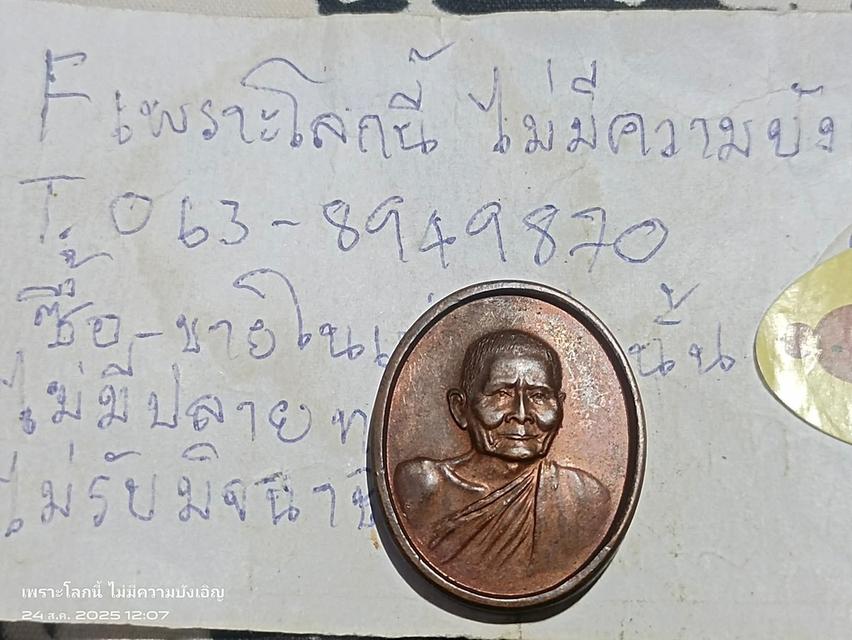 F เพราะโลกนี้ ไม่มีความบัง
T. 063-8949870
ซื้อ-ขาย นั้น
ไม่มีปลายท
ไม่รับมิจฉาชี
เพราะโลกนี้ ไม่มีความบังเอิญ
24 ส.ค. 2025 12:07